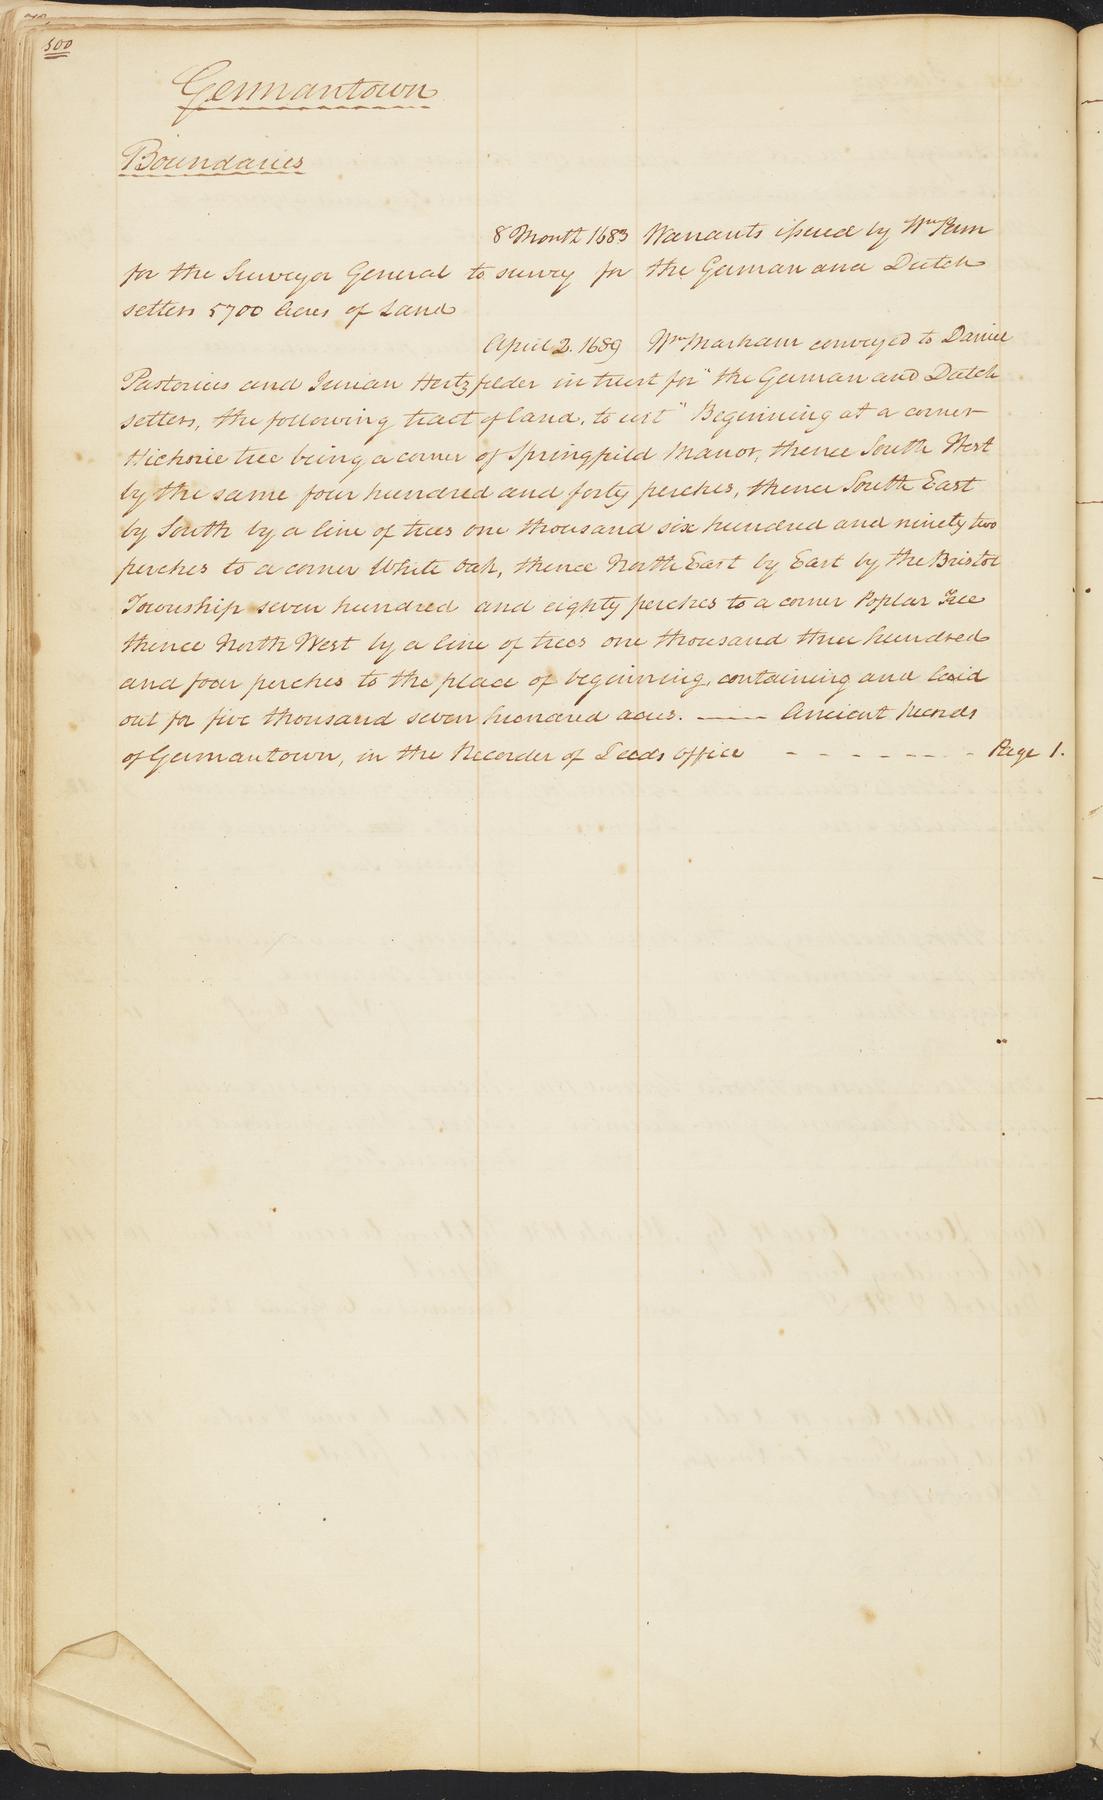 500
Germantown
Boundaries
8 Month 1683 Warrants issued by Wm Penn
for the Surveyor General to survey for the German and Dutch
setters 5700 Acres of Land
April 2. 1689 Wm Markam conveyed to Daniel
Pastorius and Jurian Hertzfelder in trust for " the German and Dutch
setters, the following tract of land, to wit " Beginning at a corner
Hickorie tree being a corner of Springfield Manor, thence South West
by the same four hundred and forty perches, thence South East
by South by a line of trees one thousand six hundred and ninety two
perches to a corner White Oak, thence North East by East by the Bristol
Township seven hundred and eighty perches to a corner Poplar Tree
thence North West by a line of trees one thousand three hundred
and four perches to the place of beginning, containing and laid
out for five thousand seven hundred acres. —— Ancient Records
of Germantown, in the Recorder of Deeds office - - - - - - - Page 1.